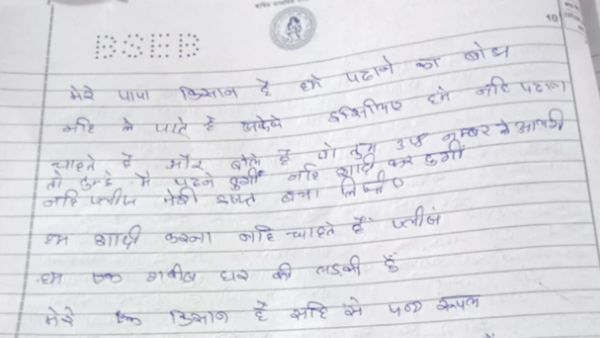 BSEB
10
मेरे पापा किसान है हमे पढाने का बोझ
नहि ले पाते है अकेले इसिलिए हमे नहि पढाना
चाहते है और बोले है जो तुम 318 नम्बर से आयगी
तो तुम्हे मै पढने दुगाँ नहि शादी कर दुगाँ
नहि प्लीज मेरी इज्जत बचा लिजीए
हम शादी करना नहि चाहते हैं प्लीजं
हम एक गरीब घर की लडकी हूँ
मेरे एक किसान है सहि से पन्द्र रूपए